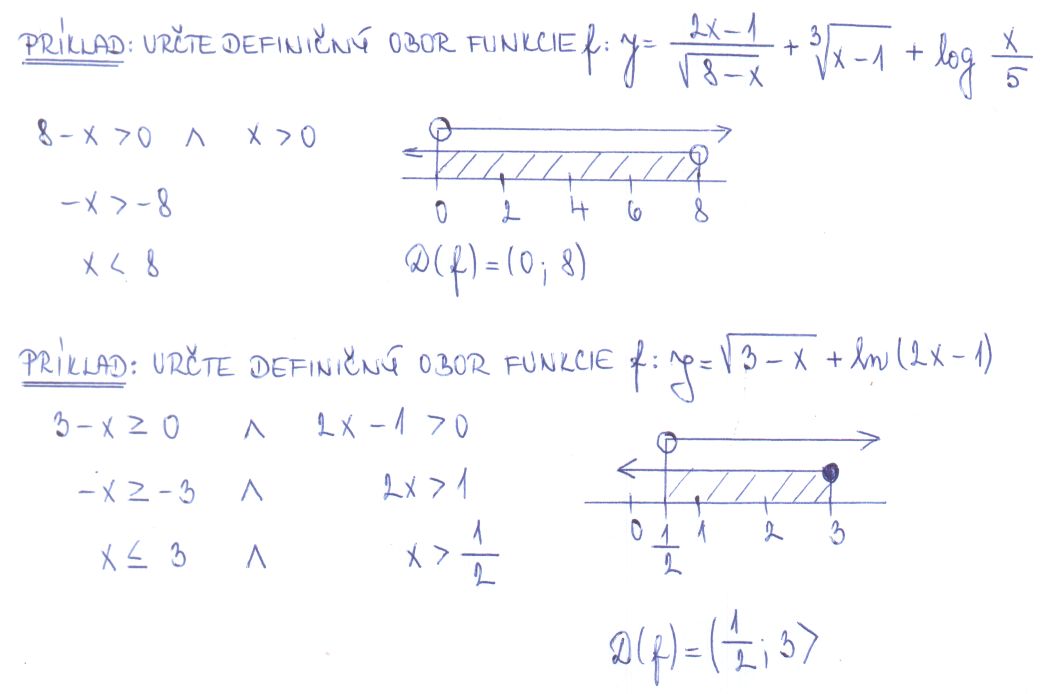 PRÍKLAD: URČTE DEFINIČNÝ OBOR FUNKCIE f: y = \frac{2x-1}{\sqrt{8-x}} + \sqrt[3]{x-1} + log \frac{x}{5}
8-x > 0 ∧ x > 0
-x > -8
x < 8
0 2 4 6 8
D(f) = (0; 8)
PRÍKLAD: URČTE DEFINIČNÝ OBOR FUNKCIE f: y = \sqrt{3-x} + ln(2x-1)
3-x ≥ 0 ∧ 2x-1 > 0
-x ≥ -3 ∧ 2x > 1
x ≤ 3 ∧ x > \frac{1}{2}
0 \frac{1}{2} 1 2 3
D(f) = (\frac{1}{2}; 3⟩